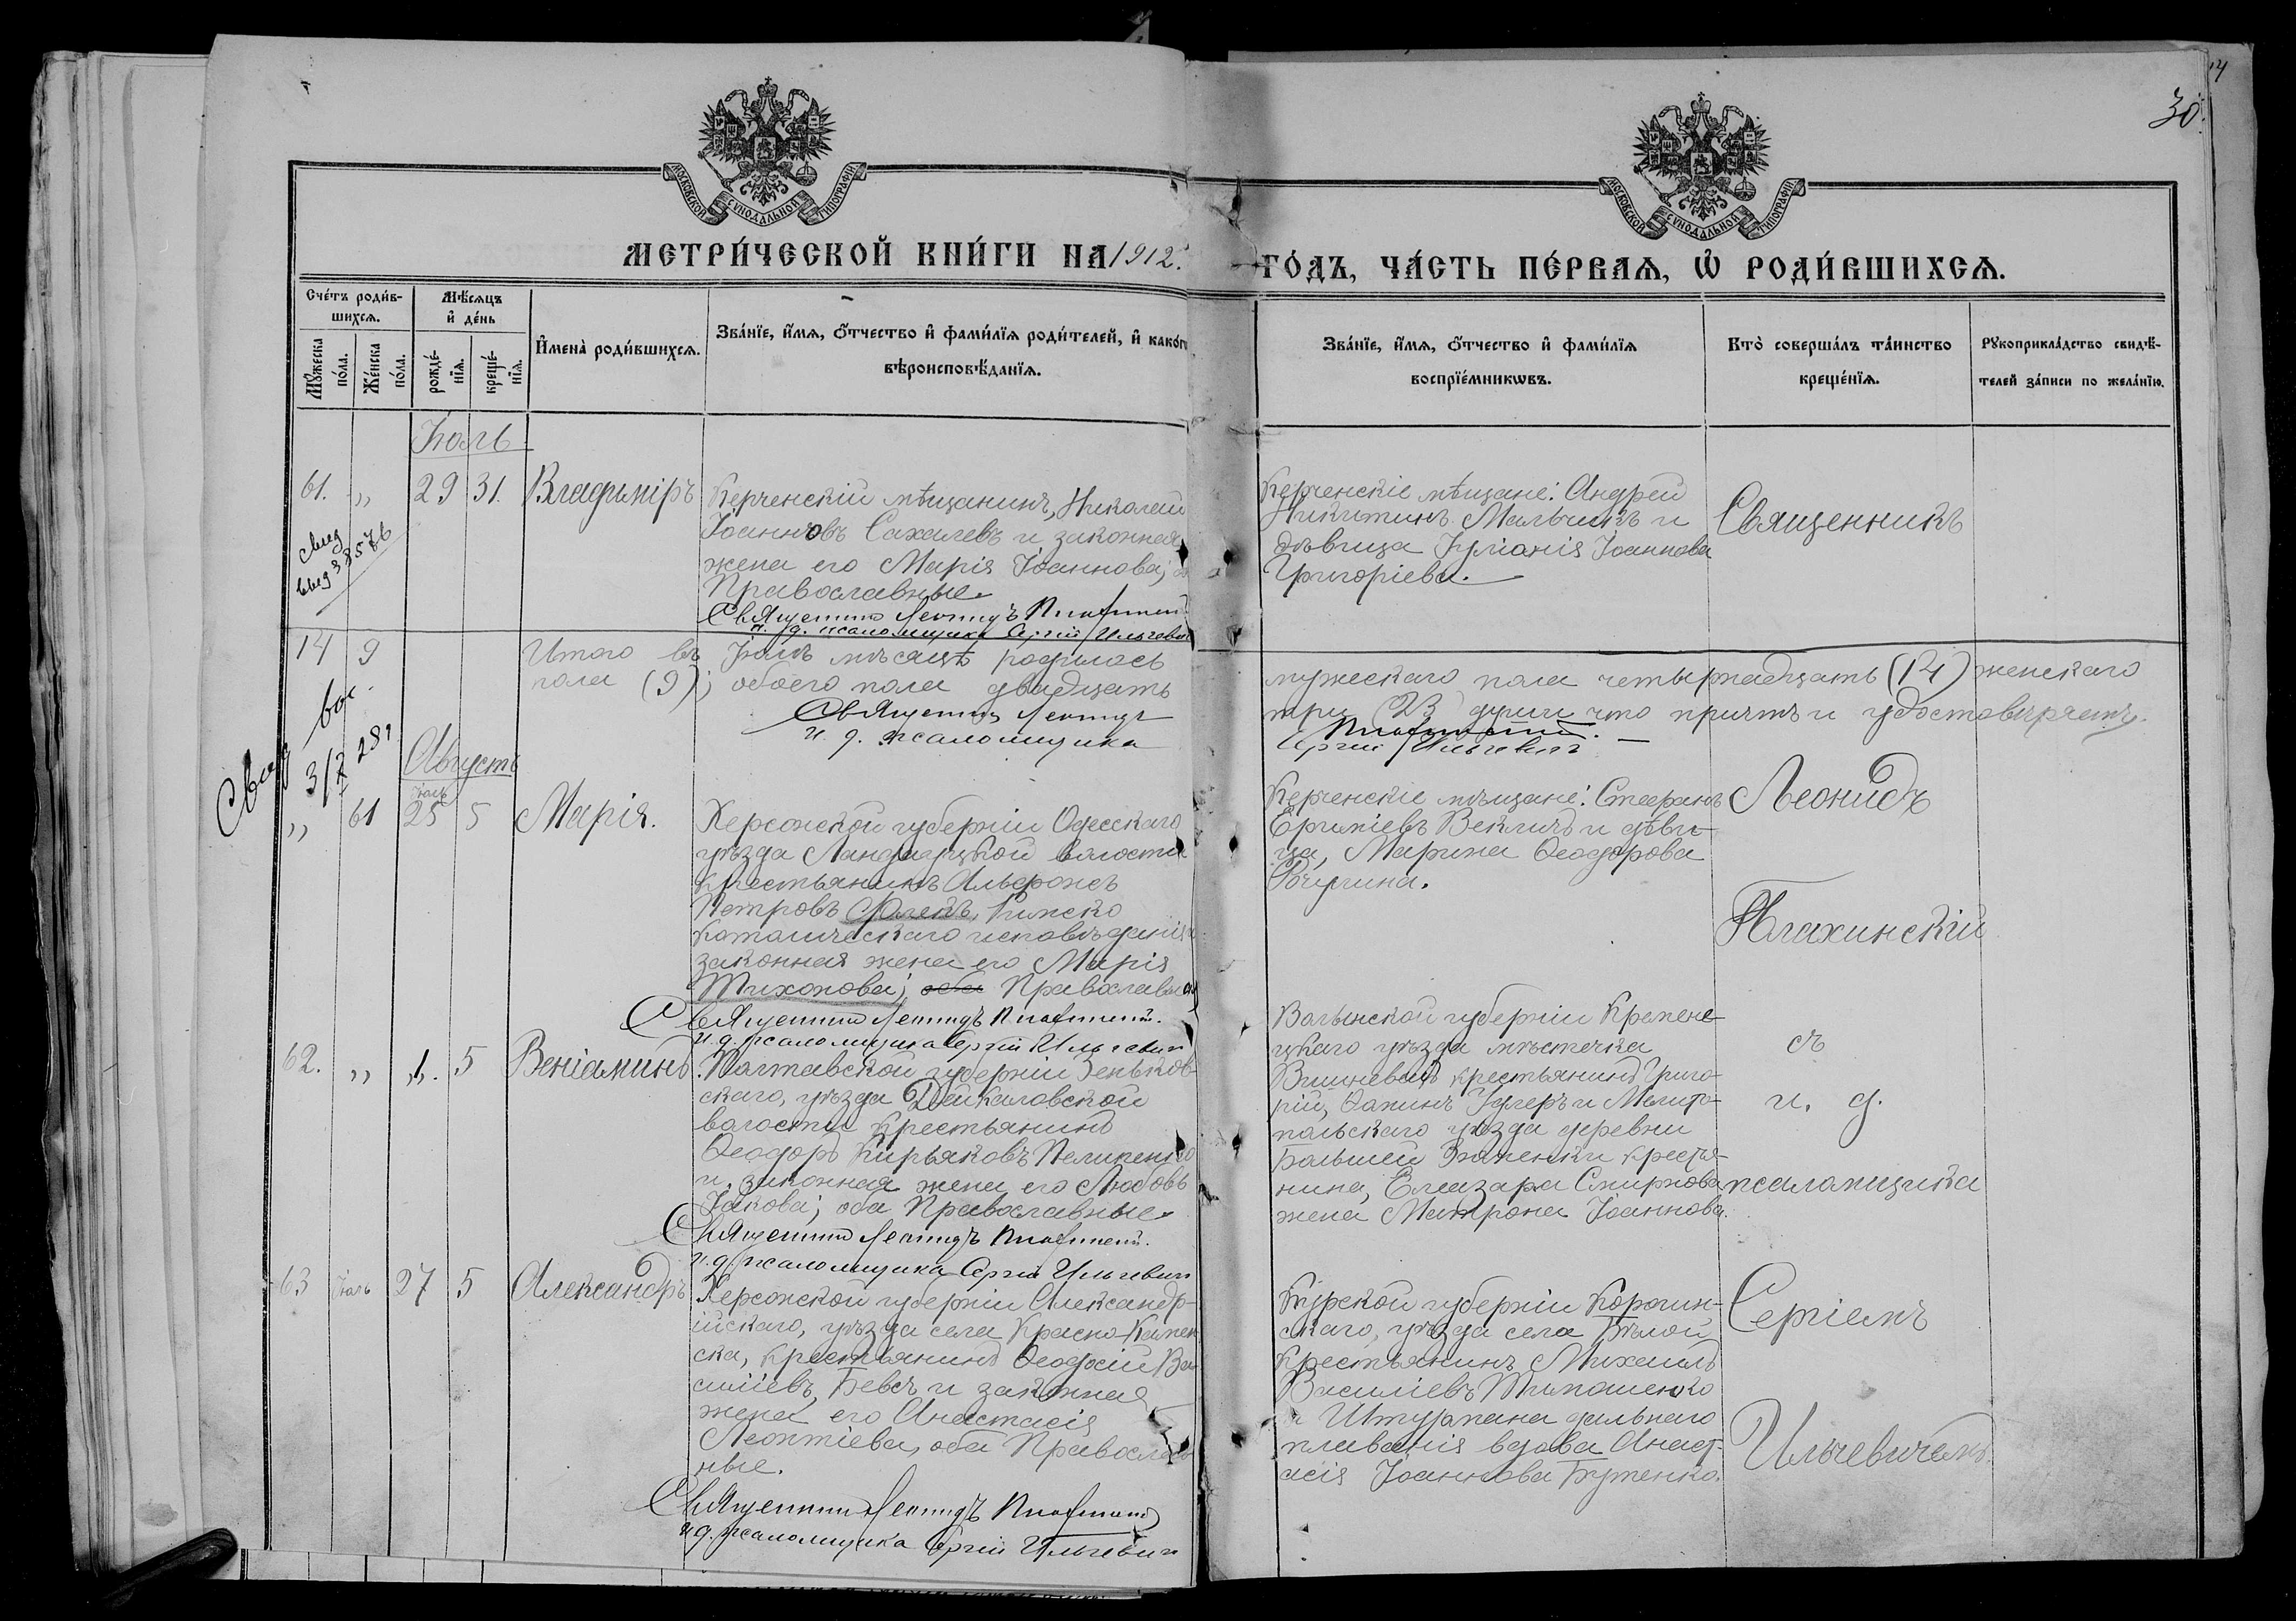 30.
МОСКОВСКОЙ СѴНОДАЛЬНОЙ ТИПОГРАФІИ
МОСКОВСКОЙ СѴНОДАЛЬНОЙ ТИПОГРАФІИ
МЕТРИ́ЧЕСКОЙ КНИ́ГИ НА 1912.
ГО́ДЪ, ЧА́СТЬ ПЕ́РВАЯ, Ѡ РОДИ́ВШИХСЯ.
Сче́тъ роди́в-
шихся.
Му́жеска по́ла.
Же́нска по́ла.
Мѣ́сяцъ
и де́нь
рожде́-
нїя.
креще́-
нїя.
И҆мена̀ роди́вшихся.
Зва́нїе, и҆́мя, ѻ҆́тчество и҆ фами́лїя роди́телей, и҆ како́гѡ
вѣроисповѣ́данїя.
Зва́нїе, и҆́мя, ѻ҆́тчество и҆ фами́лїя
воспрїе́мникѡвъ.
Кто̀ соверша́лъ та́инство
креще́нїя.
Рꙋкоприкла́дство свидѣ́-
телей за́писи по жела́нїю.
Іюль
61. „ 29 31. Владиміръ
Керченскій мѣщанинъ, Николай
Іоанновъ Сахалевъ и законная
жена его Марія Іоаннова;
Православные.
Священникъ Леонидъ
и. д. псаломщика Сергій Ильчевич
Керченскіе мѣщане: Андрей
Никитинъ Мальчикъ и
дѣвица Іуліанія Іоаннова
Григоріева.
Священникъ
14 9 Итого въ Іюлѣ мѣсяцѣ родилось
мужескаго пола четырнадцать (14) женскаго
пола (9); обоего пола двадцать
три (23) души что причтъ и удостовѣряетъ.
Священникъ Леонидъ
и. д. псаломщика
Сергій Ильчевич
Августъ
„ 61 Іюль 25 5 Марія.
Херсонской губерніи Одесскаго
уѣзда Ландауской волости
крестьянинъ Альфонсъ
Петровъ Фалекъ, Римско
Католическаго исповѣданія
законная жена его Марія
Тихонова; оба Православная
Священникъ Леонидъ
и. д. псаломщика Сергій Ильчевич
Керченскіе мѣщане: Стефанъ
Ефиміевъ Векличъ и дѣви-
ца, Марина Ѳеодорова
Леонидъ
Плахинскій
62. „ 1. 5 Веніаминъ
Полтавской губерніи Зеньков-
скаго, уѣзда Дейкаловской
волости крестьянинъ
Ѳеодоръ Кирьяковъ Пелипенко
и, законная жена его Любовь
Іакова; оба Православные.
Священникъ Леонидъ
и. д. псаломщика Сергій Ильчевич
Волынской губерніи Кремене-
цкаго уѣзда мѣстечка
Вишневецъ крестьянинъ Григо-
рій, Ѳоминъ и Мелито-
польскаго уѣзда деревни
Большей Знаменки крестья-
нина, Елеазара Смирнова
жена Матрона Іоаннова.
съ
и. д.
псаломщика
63 Іюль 27 5 Александръ
Херсонской губерніи Александр-
ійскаго, уѣзда села Красно-Камен
ска, крестьянинъ Ѳеодосій Ва
силіевъ, Бевсъ и законная
жена его Анастасія
Леонтіева, оба Православ
ные.
Священникъ Леонидъ
и д. псаломщика Сергій Ильчевич
Курской губерніи
скаго, уѣзда села Бѣлой
крестьянинъ Михаилъ
Василіевъ Тимошенко
и Штурмана дальнаго
плаванія вдова Анаст-
асія Іоаннова Бутенко.
Сергіемъ
Ильчевичемъ.